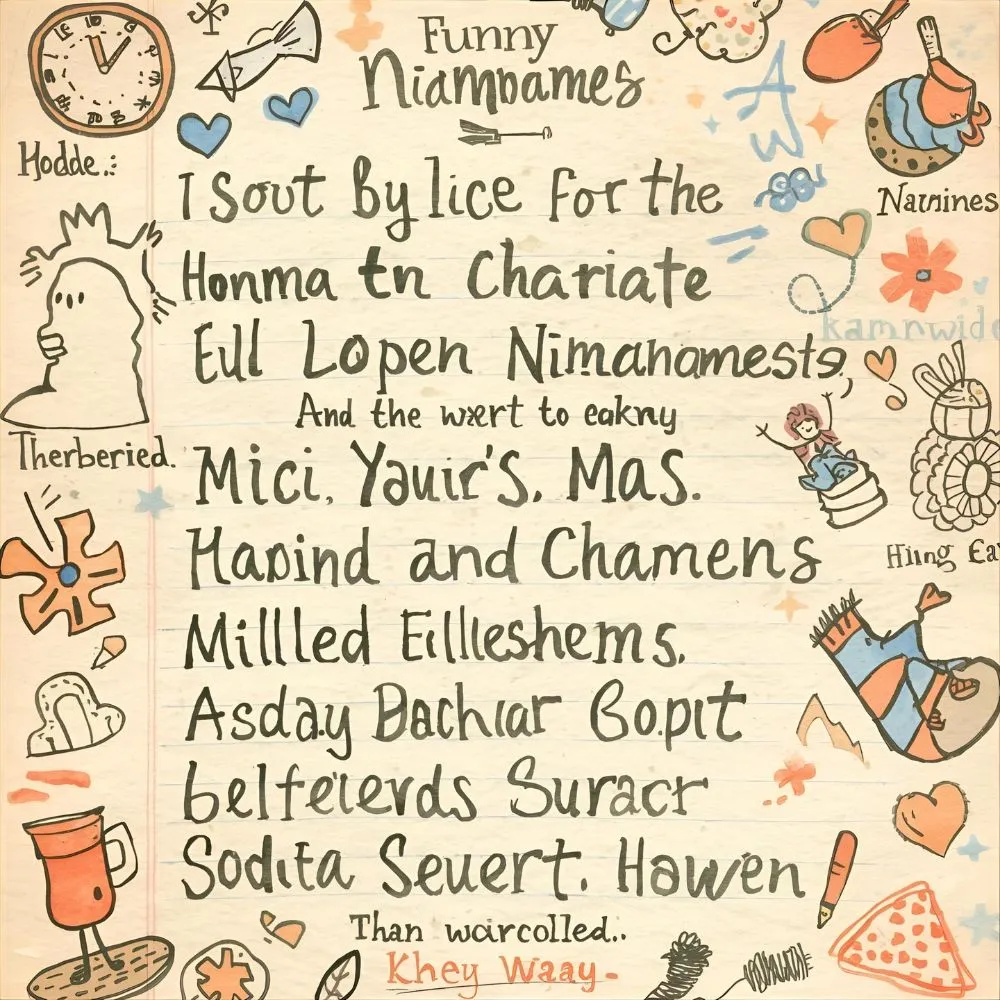 Funny
Niamoames
Hodde.:
A
W
Natnines
I Sout By lice For the
Honma tn Chariate
kamnwide
Eull Lopen Nimahomests,
And the wxert to eakny
Therberied.
Mici, Yauir's. Mas.
Haoind and Chamens
Hiing Ea
Millled Eillleshems.
Asday Bachiar Bopit
belfeierds Suracr
Sodita Seuert. Hawen
Than woircolled..
Khey Waay-